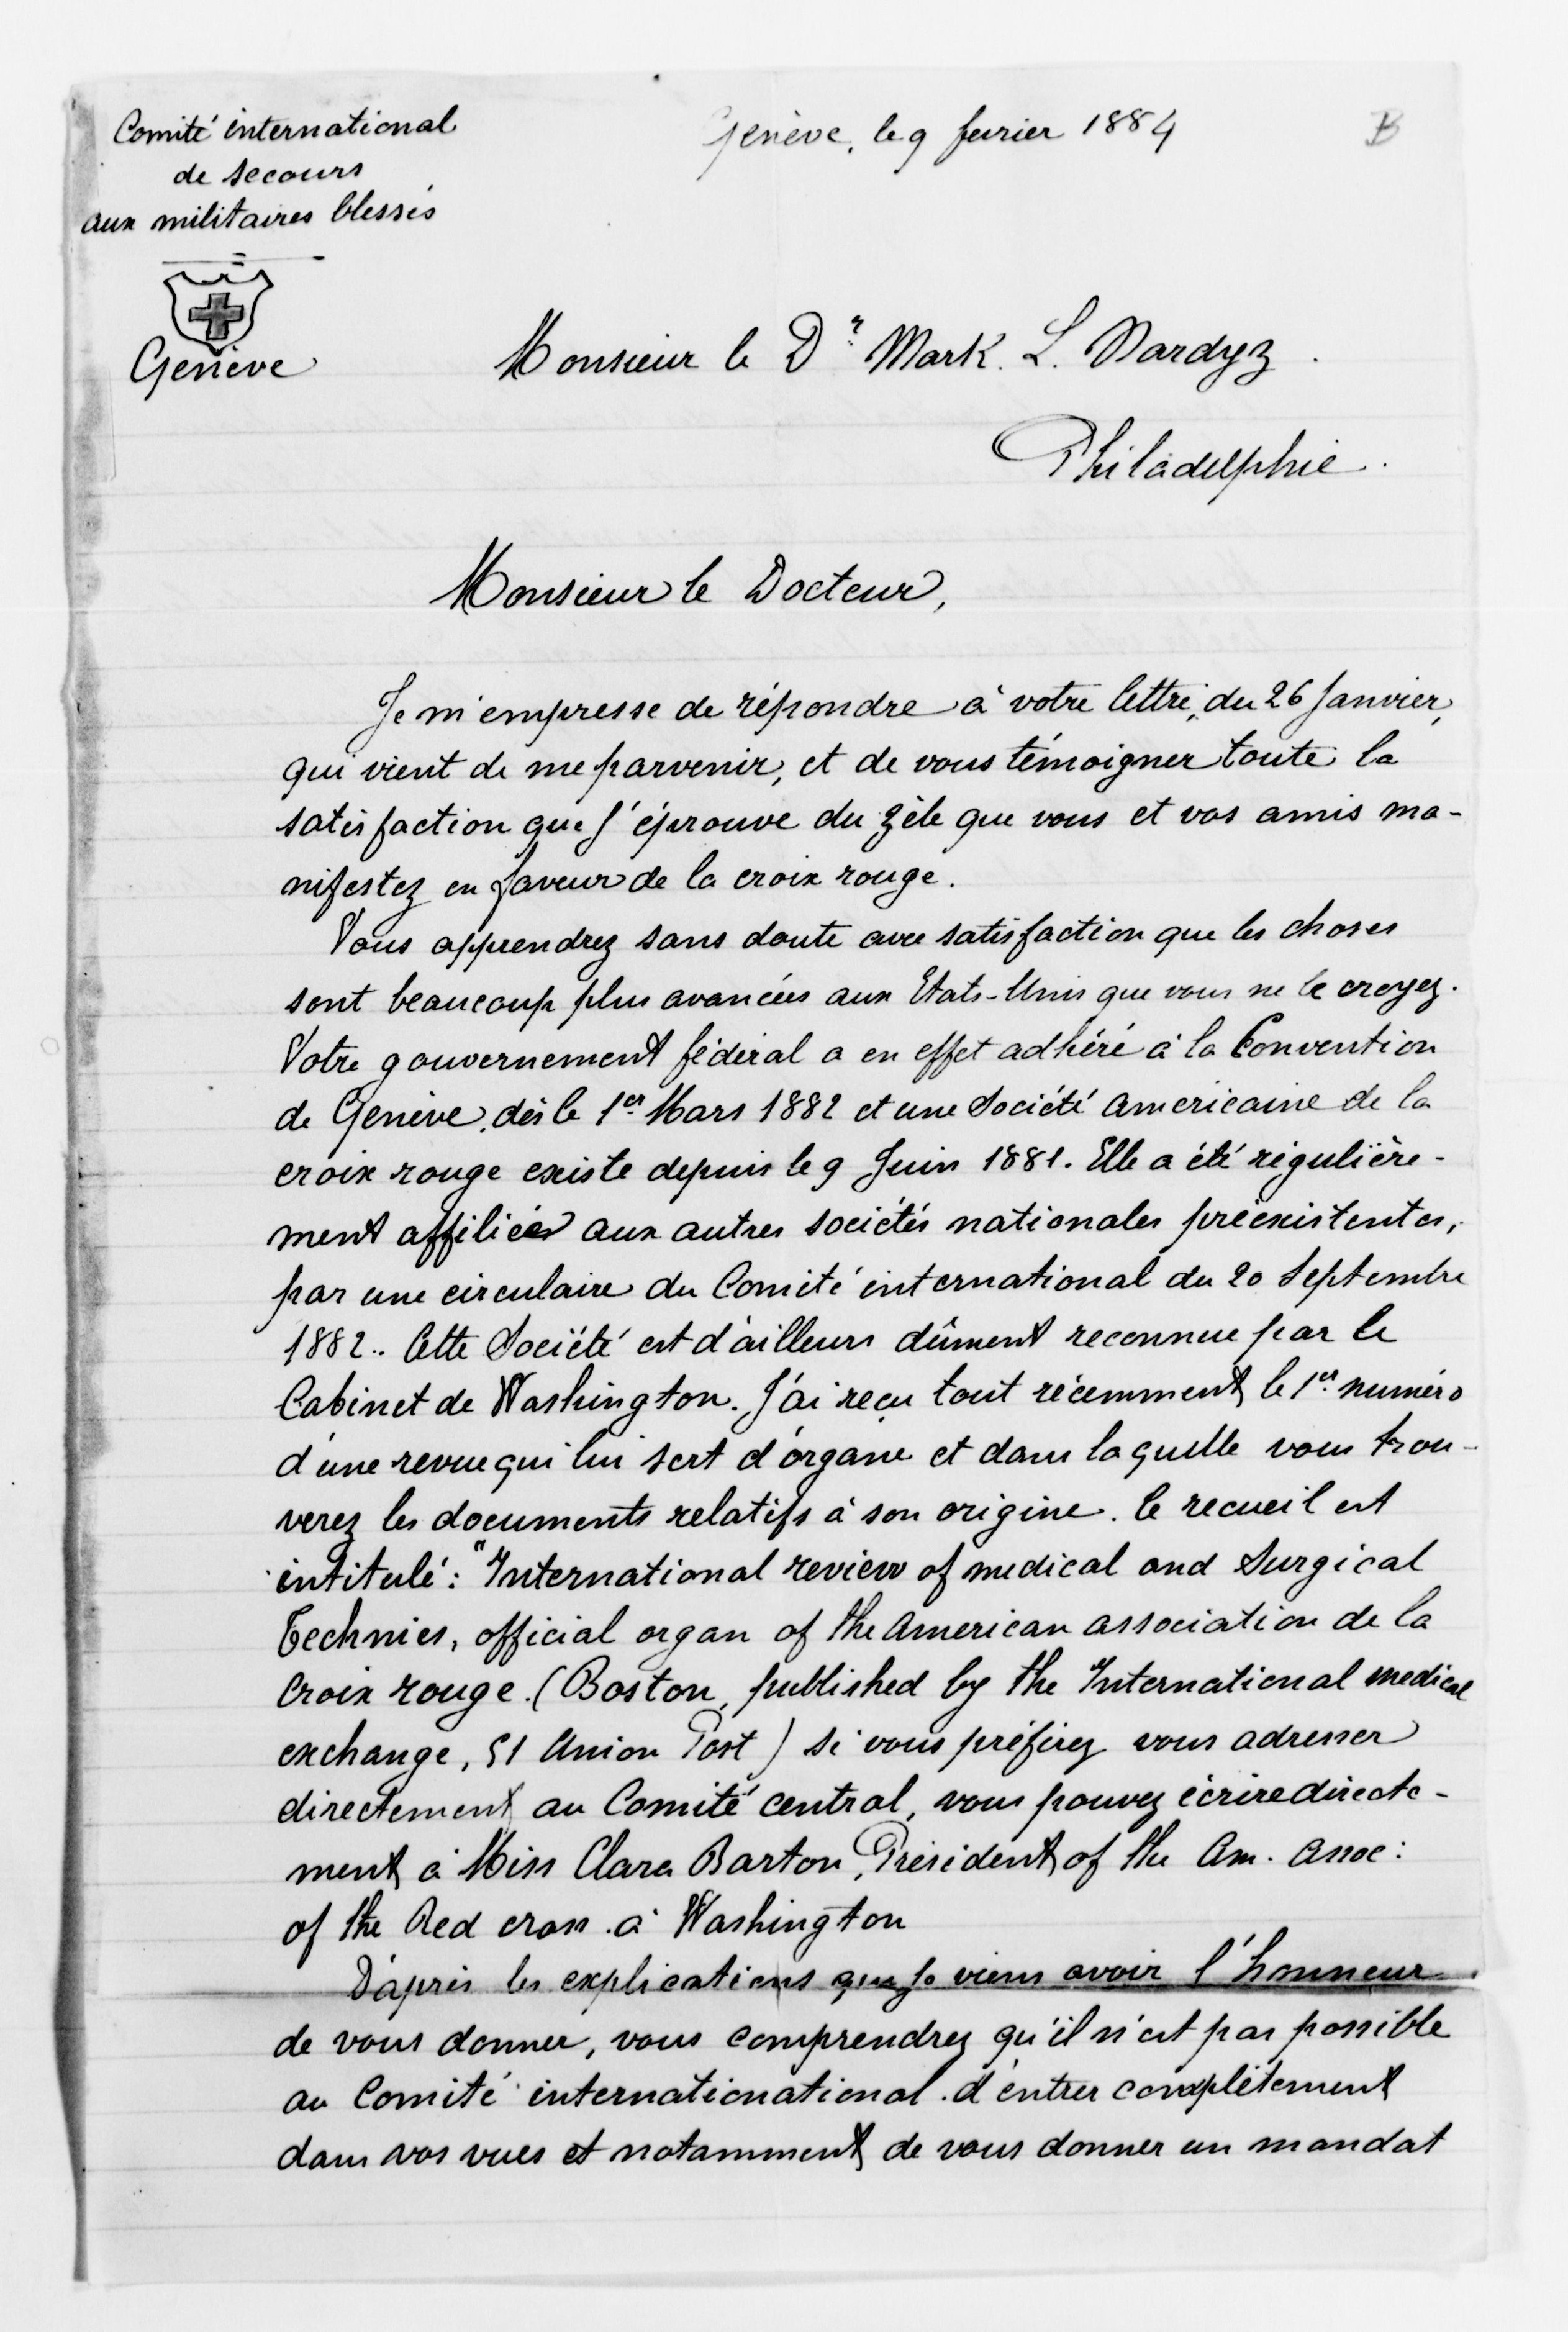 Comité international
de secours
aux militaires blessés
Genève
Genève, le 9 fevrier 1884
B
Monsieur le Dr. Mark. L. Nardyz.
Philadelphie.
Monsieur le Docteur,
Je m'empresse de répondre à votre lettre, du 26 Janvier,
qui vient de me parvenir, et de vous témoigner toute la
satisfaction que j'éprouve du zèle que vous et vos amis ma-
nifestez en faveur de la croix rouge.
Vous apprendrez sans doute avec satisfaction que les choses
sont beaucoup plus avancées aux Etats-Unis que vous ne le croyez.
Votre gouvernement fédéral a en effet adhéré à la Convention
de Genève, dès le 1er Mars 1882 et une Société américaine de la
croix rouge existe depuis le 9 Juin 1881. Elle a été régulière-
ment affiliée aux autres sociétés nationales préexistentes,
par une circulaire du Comité international du 20 Septembre
1882.. Cette Société est d'ailleurs dûment reconnue par le
Cabinet de Washington. J'ai reçu tout récemment le 1er numéro
d'une revue qui lui sert d'organe et dans laquelle vous trou-
verez les documents relatifs à son origine. Ce recueil est
intitulé: "International review of medical and Surgical
Technics, official organ of the American association de la
Croix rouge. (Boston, published by the International medical
exchange, 51 Union Post) Si vous préférez vous adresser
directement au Comité central, vous pouvez écrire directe-
ment à Miss Clara Barton, Président of the Am. Assoc:
of the Red cross. à Washington
D'après les explications que je viens avoir l'honneur
de vous donner, vous comprendrez qu'il n'est pas possible
au Comité internationational d'entrer complètement
dans vos vues et notamment de vous donner un mandat